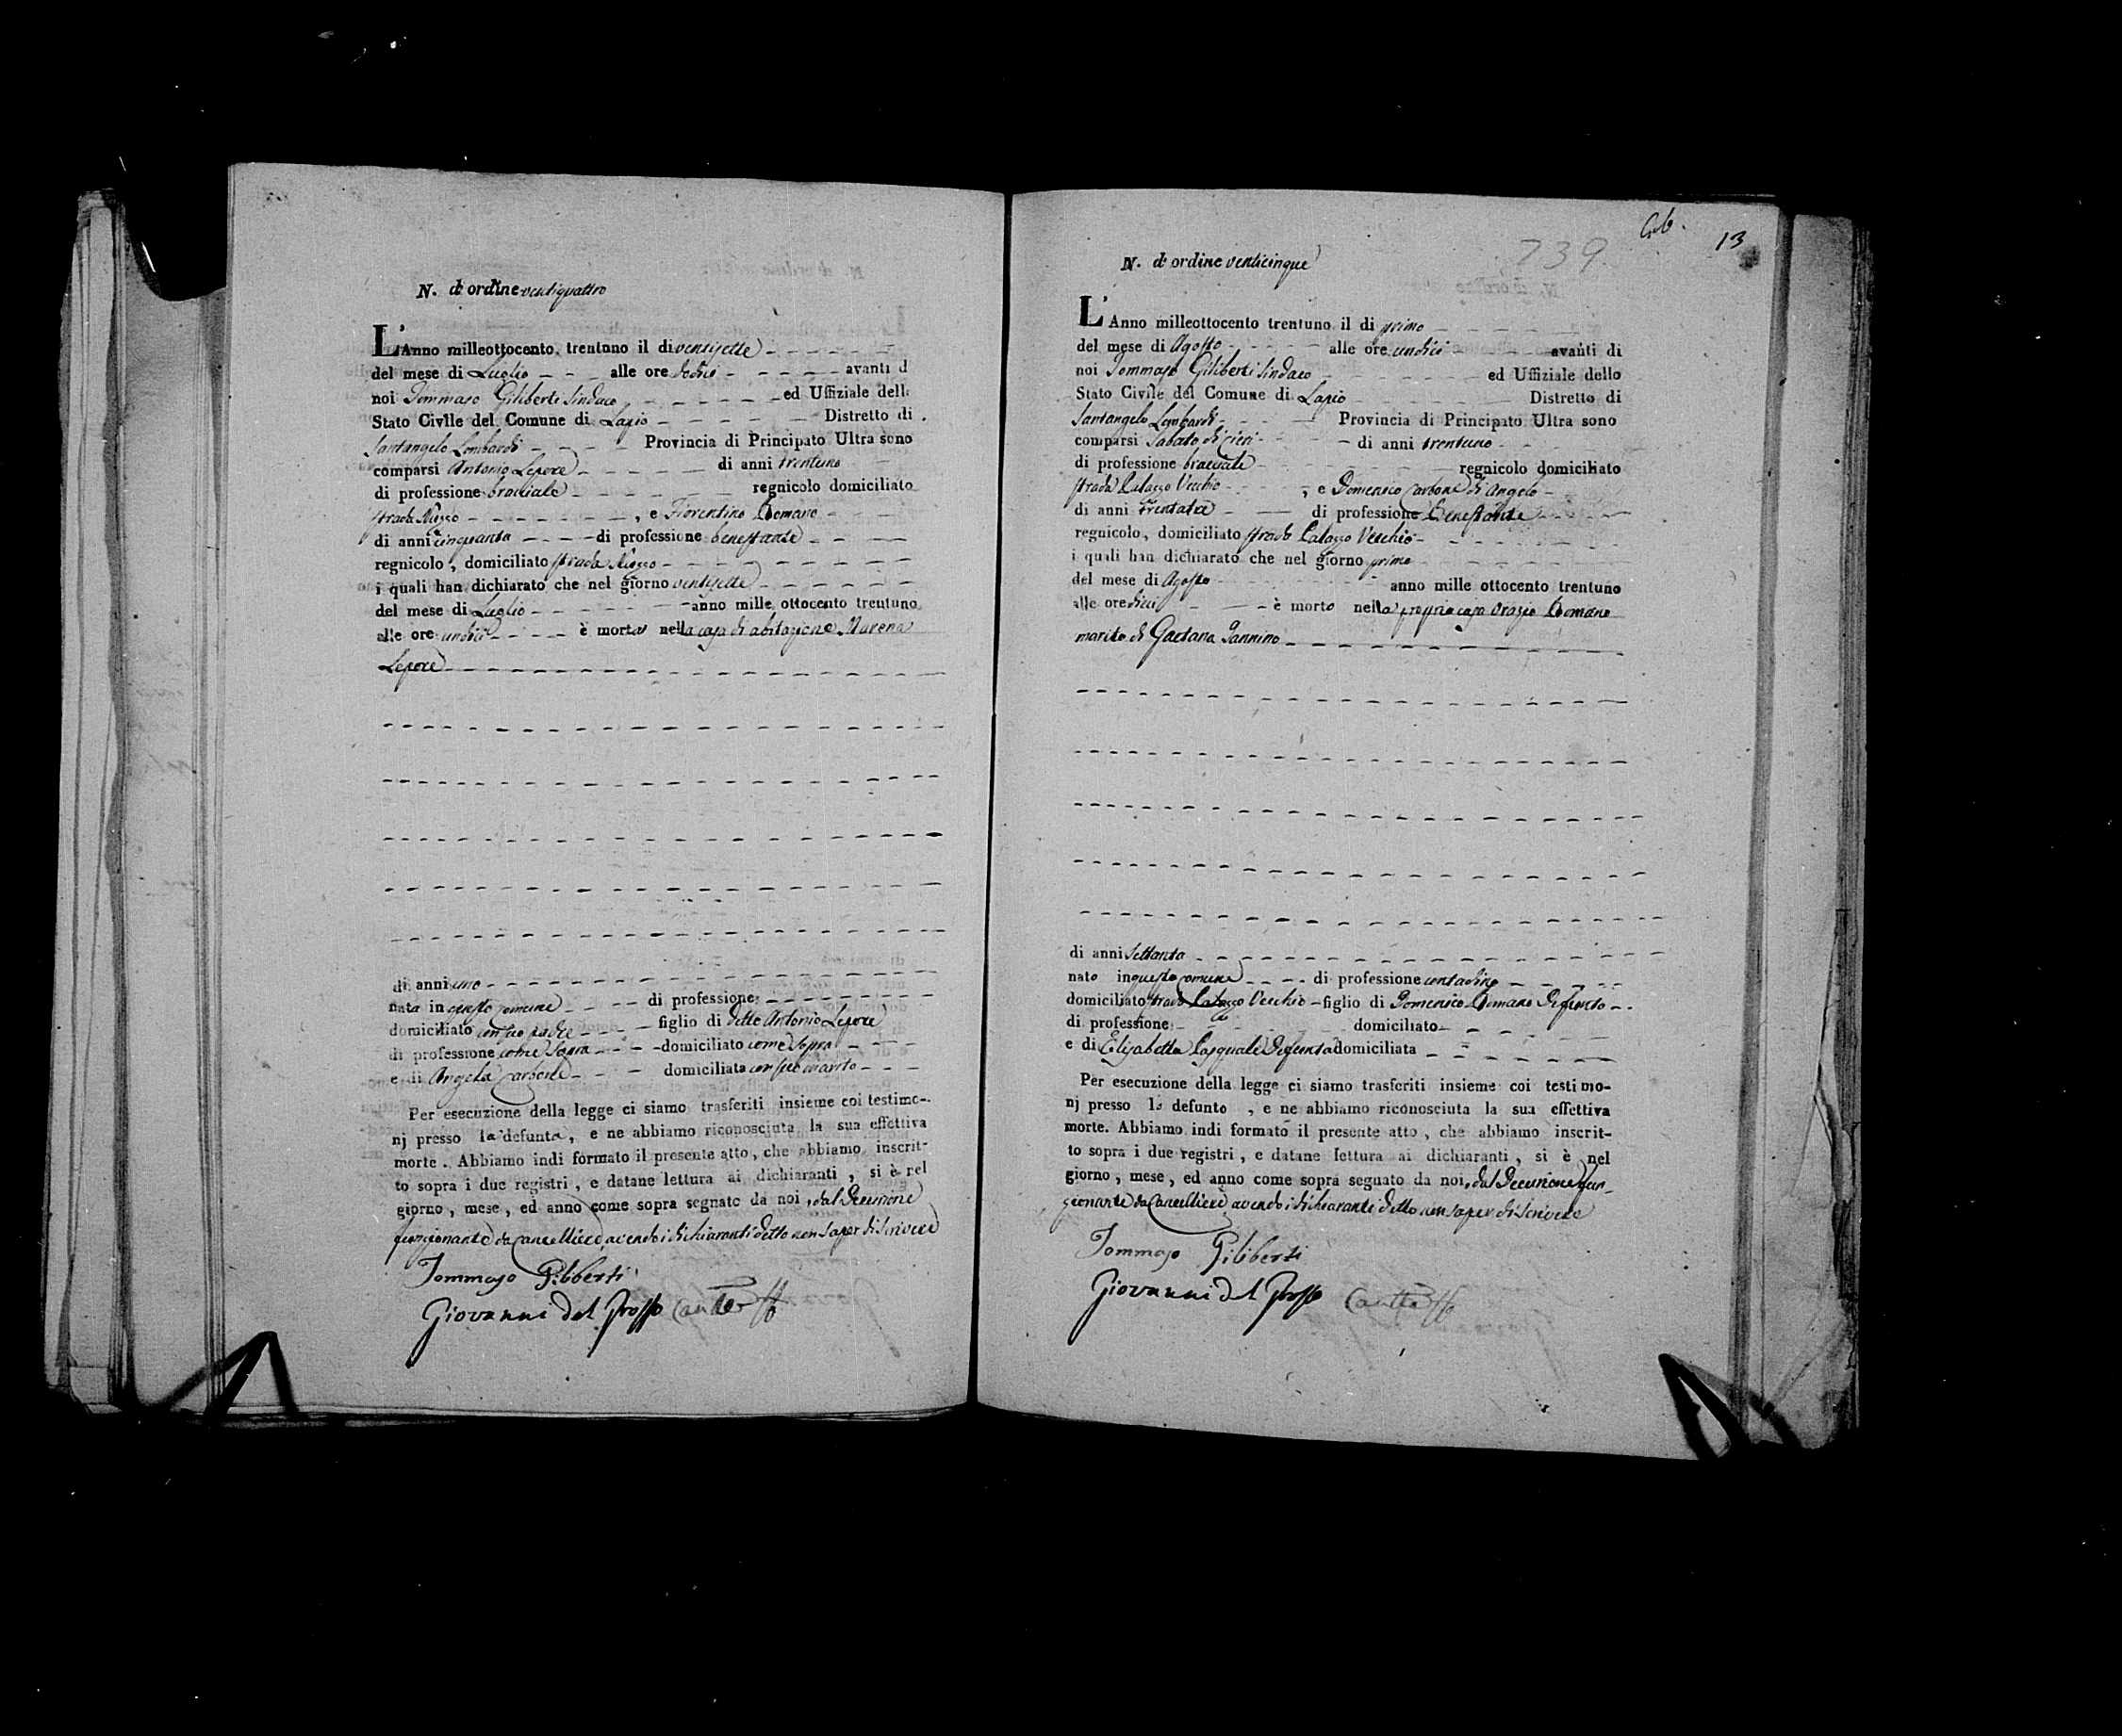 N. di ordine ventiquattro
L'Anno milleottocento trentuno il di ventisette
del mese di Luglio alle ore dodici avanti d
noi Tommaso Giliberti Sindaco ed Uffiziale dell
Stato Civile del Comune di Lapio Distretto di
Santangelo Lombardi Provincia di Principato Ultra sono
comparsi Antonio Lepore di anni trentuno
di professione bracciale regnicolo domiciliato
strada , e Fiorentino Romano
di anni cinquanta di professione benestante
regnicolo , domiciliato strada
i quali han dichiarato che nel giorno ventisette
del mese di Luglio anno mille ottocento trentuno
alle ore undici è morta nella casa di abitazione
Lepore
di anni uno
nata in questo comune di professione
domiciliato con suo padre figlio di detto Antonio Lepore
di professione come sopra domiciliato come sopra
e di Angela Carbone domiciliata con suo marito
Per esecuzione della legge ci siamo trasferiti insieme coi testimo-
nj presso la defunta , e ne abbiamo riconosciuta la sua effettiva
morte . Abbiamo indi formato il presente atto , che abbiamo inscrit-
to sopra i due registri , e datane lettura ai dichiaranti , si è nel
giorno , mese , ed anno come sopra segnato da noi , dal Decurione
funzionante da Cancelliere avendo i dichiaranti detto non saper di scrivere
Tommaso Giliberti
Giovanni Del Grosso
Lib.
13
739
N. di ordine venticinque
L'Anno milleottocento trentuno il di primo
del mese di Agosto alle ore undici avanti di
noi Tommaso Giliberti Sindaco ed Uffiziale dello
Stato Civile del Comune di Lapio Distretto di
Santangelo Lombardi Provincia di Principato Ultra sono
comparsi Sabato di anni trentuno
di professione bracciale regnicolo domiciliato
strada Palazzo Vecchio , e Domenico Carbone di Angelo
di anni trentatre di professione Benestante
regnicolo , domiciliato strada Palazzo Vecchio
i quali han dichiarato che nel giorno primo
del mese di Agosto anno mille ottocento trentuno
alle ore dieci è morto nella propria casa Orazio Romano
marito di Gaetana Iannino
di anni settanta
nato in questo comune di professione contadino
domiciliato strada Palazzo Vecchio figlio di Domenico Romano Defunto
di professione domiciliato
e di Elisabetta Pasquale Defunta domiciliata
Per esecuzione della legge ci siamo trasferiti insieme coi testimo-
nj presso lo defunto , e ne abbiamo riconosciuta la sua effettiva
morte. Abbiamo indi formato il presente atto , che abbiamo inscrit-
to sopra i due registri , e datane lettura ai dichiaranti , si è nel
giorno , mese , ed anno come sopra segnato da noi, dal Decurione fun-
zionante da Cancelliere avendo i dichiaranti detto non saper di scrivere
Tommaso Giliberti
Giovanni Del Grosso